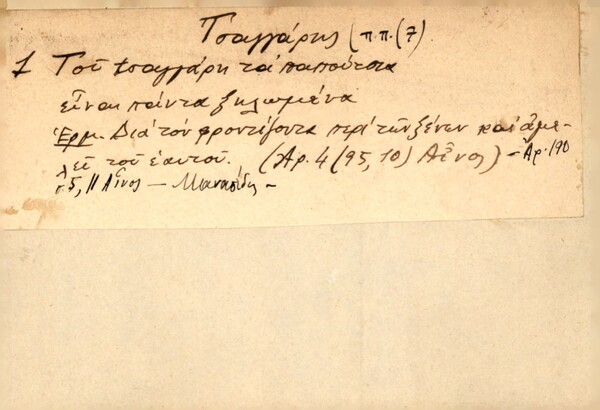 Τσαγγάρης (π.π. (7)
1 Τοῦ τσαγγάρη τά παπούτσια
εἶναι πάντα ξηλωμένα
Ἑρμ. Διά τόν φροντίζοντα περί τῶν ξένων καί ἀμε-
λεῖ τοῦ ἑαυτοῦ. (Ἀρ. 4 (95, 10) Αἶνος) – Ἀρ. 190
σ. 5, 11 Αἶνος – Μανασίδης –